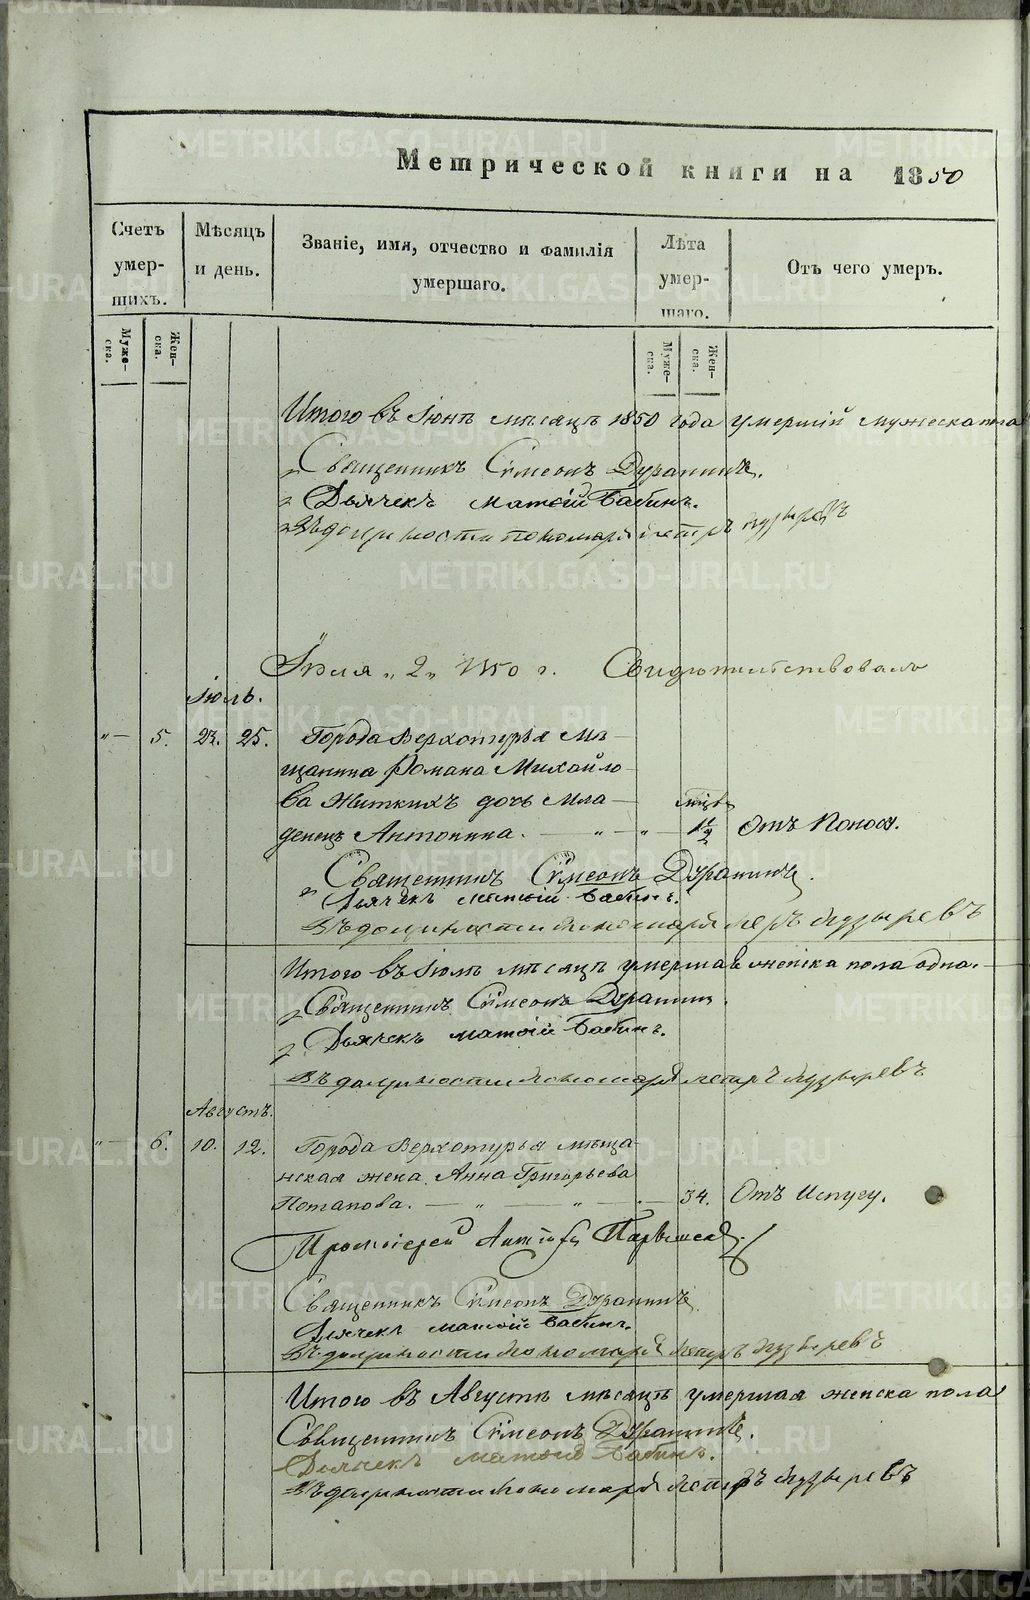 Метрической книги на 1850
Счетъ умер-шихъ.
Мѣсяцъ и день.
Званіе, имя, отчество и фамилія умершаго.
Лѣта умер-шаго.
Отъ чего умеръ.
Муже-ска.
Жен-ска.
Муже-ска.
Жен-ска.
Итого въ Іюнѣ мѣсяцѣ 1850 года умершій мужеска пола
Священникъ Симеонъ Дерапинъ.
Дьячекъ Матвій Бабинъ.
Въ должности пономаря Петръ Пузыревъ
Іюля „2„ 1850 г. Свидѣтельствовалъ
Іюль.
„ — 5. 23. 25. Города Верхотурья мѣ-
щанина Романа Михайло-
ва Житкихъ дочь мла-
денецъ Антонина. — „ — „ — 1½ Отъ Поноса.
Священникъ Симеонъ Дерапинъ.
Дьячекъ Матвій Бабинъ.
Въ должности Пономаря Петръ Пузыревъ
Итого въ Іюлѣ мѣсяцѣ умершая женска пола одна.
Священникъ Симеонъ Дерапинъ.
Дьячекъ Матвій Бабинъ.
Въ должности Пономаря Петръ Пузыревъ
Августъ.
„ — 6. 10. 12. Города Верхотурья мѣща-
нская жена Анна Григорьева
Потапова. — „ — „ — 34. Отъ Испугу.
Протоіерей
Священникъ Симеонъ Дерапинъ.
Дьячекъ Матвій Бабинъ.
Въ должности Пономаря Петръ Пузыревъ
Итого въ Августѣ мѣсяцѣ умершая женска пола
Священникъ Симеонъ Дерапинъ.
Дьячекъ Матвій Бабинъ.
Въ должности Пономаря Петръ Пузыревъ
METRIKI.GASO-URAL.RU